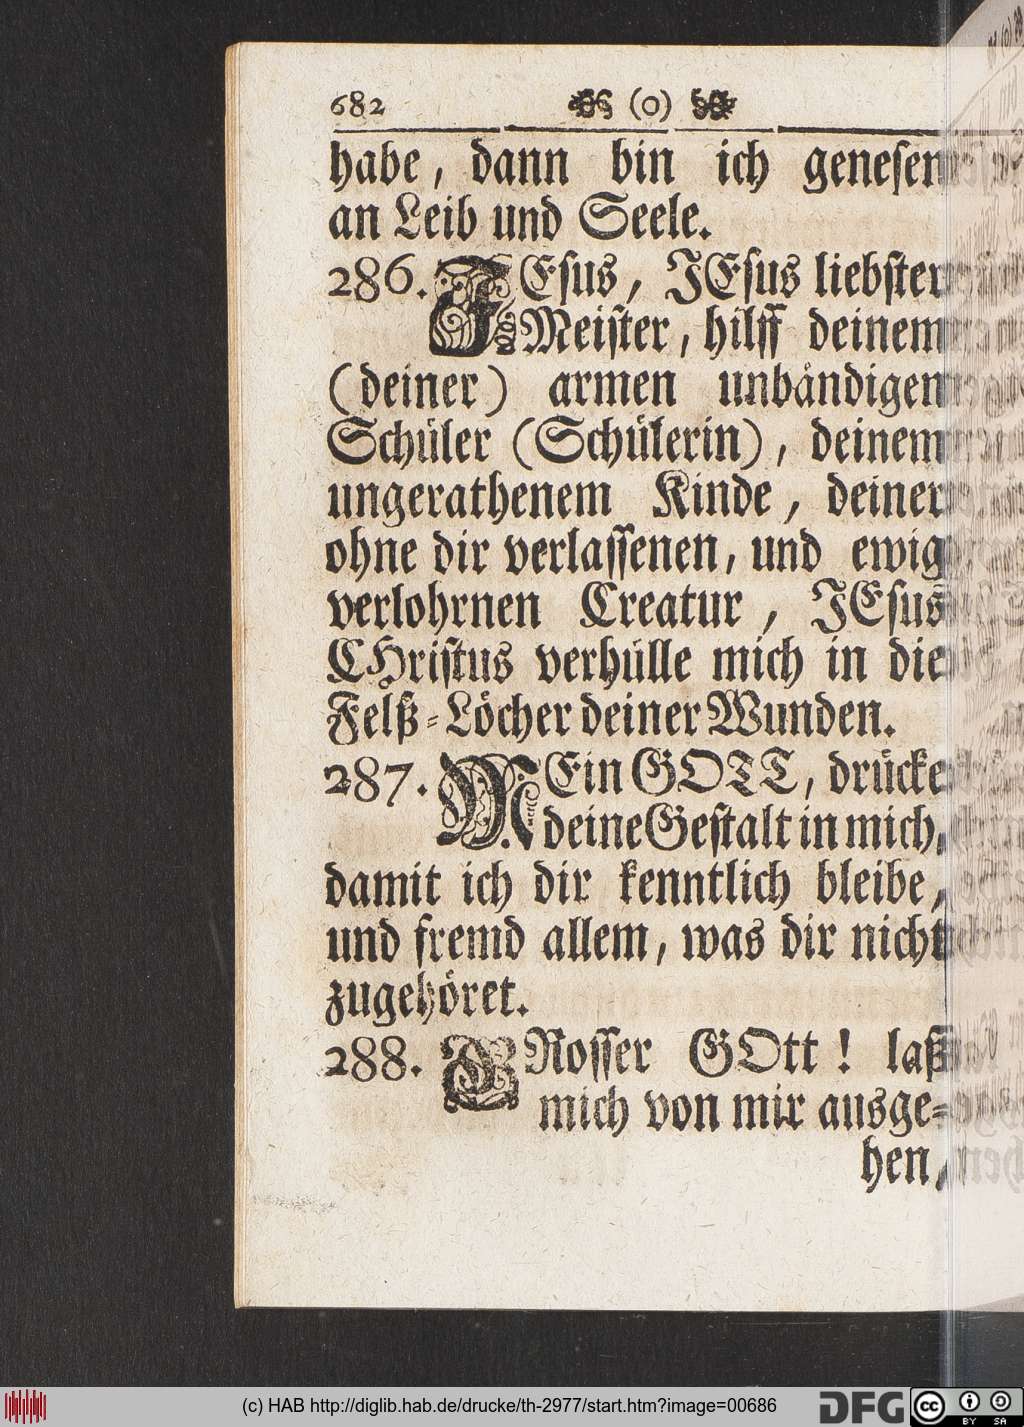 682 (o)
habe, dann bin ich genesen
an Leib und Seele.
286. JEsus, JEsus liebster
Meister, hilff deinem
(deiner) armen unbändigen
Schüler (Schülerin), deinem
ungerathenem Kinde, deiner
ohne dir verlassenen, und ewig
verlohrnen Creatur, JEsus
CHristus verhülle mich in die
Felß-Löcher deiner Wunden.
287. MEin GOTT, drücke
deine Gestalt in mich,
damit ich dir kenntlich bleibe,
und fremd allem, was dir nicht
zugehöret.
288. GRosser GOtt! laß
mich von mir ausge-
hen,
(c) HAB http://diglib.hab.de/drucke/th-2977/start.htm?image=00686
DFG
cc BY SA